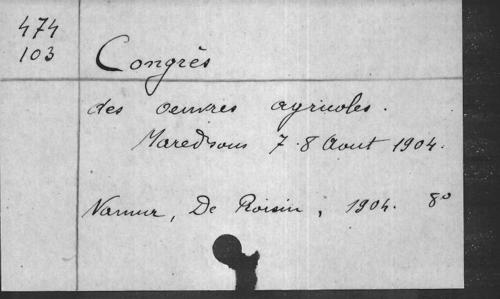 474
103
Congrès
des oeuvres agricoles.
Maredsous 7-8 Aout 1904.
Namur, De Roisin, 1904. 8º